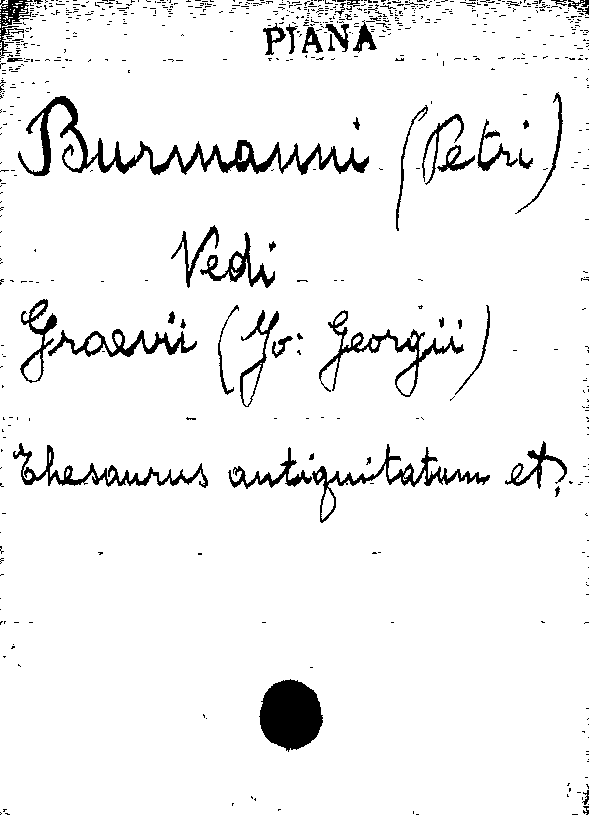 PIANA
Burmanni (Petri)
Vedi
Graevii (Jo: Georgii)
Thesaurus antiquitatum et,